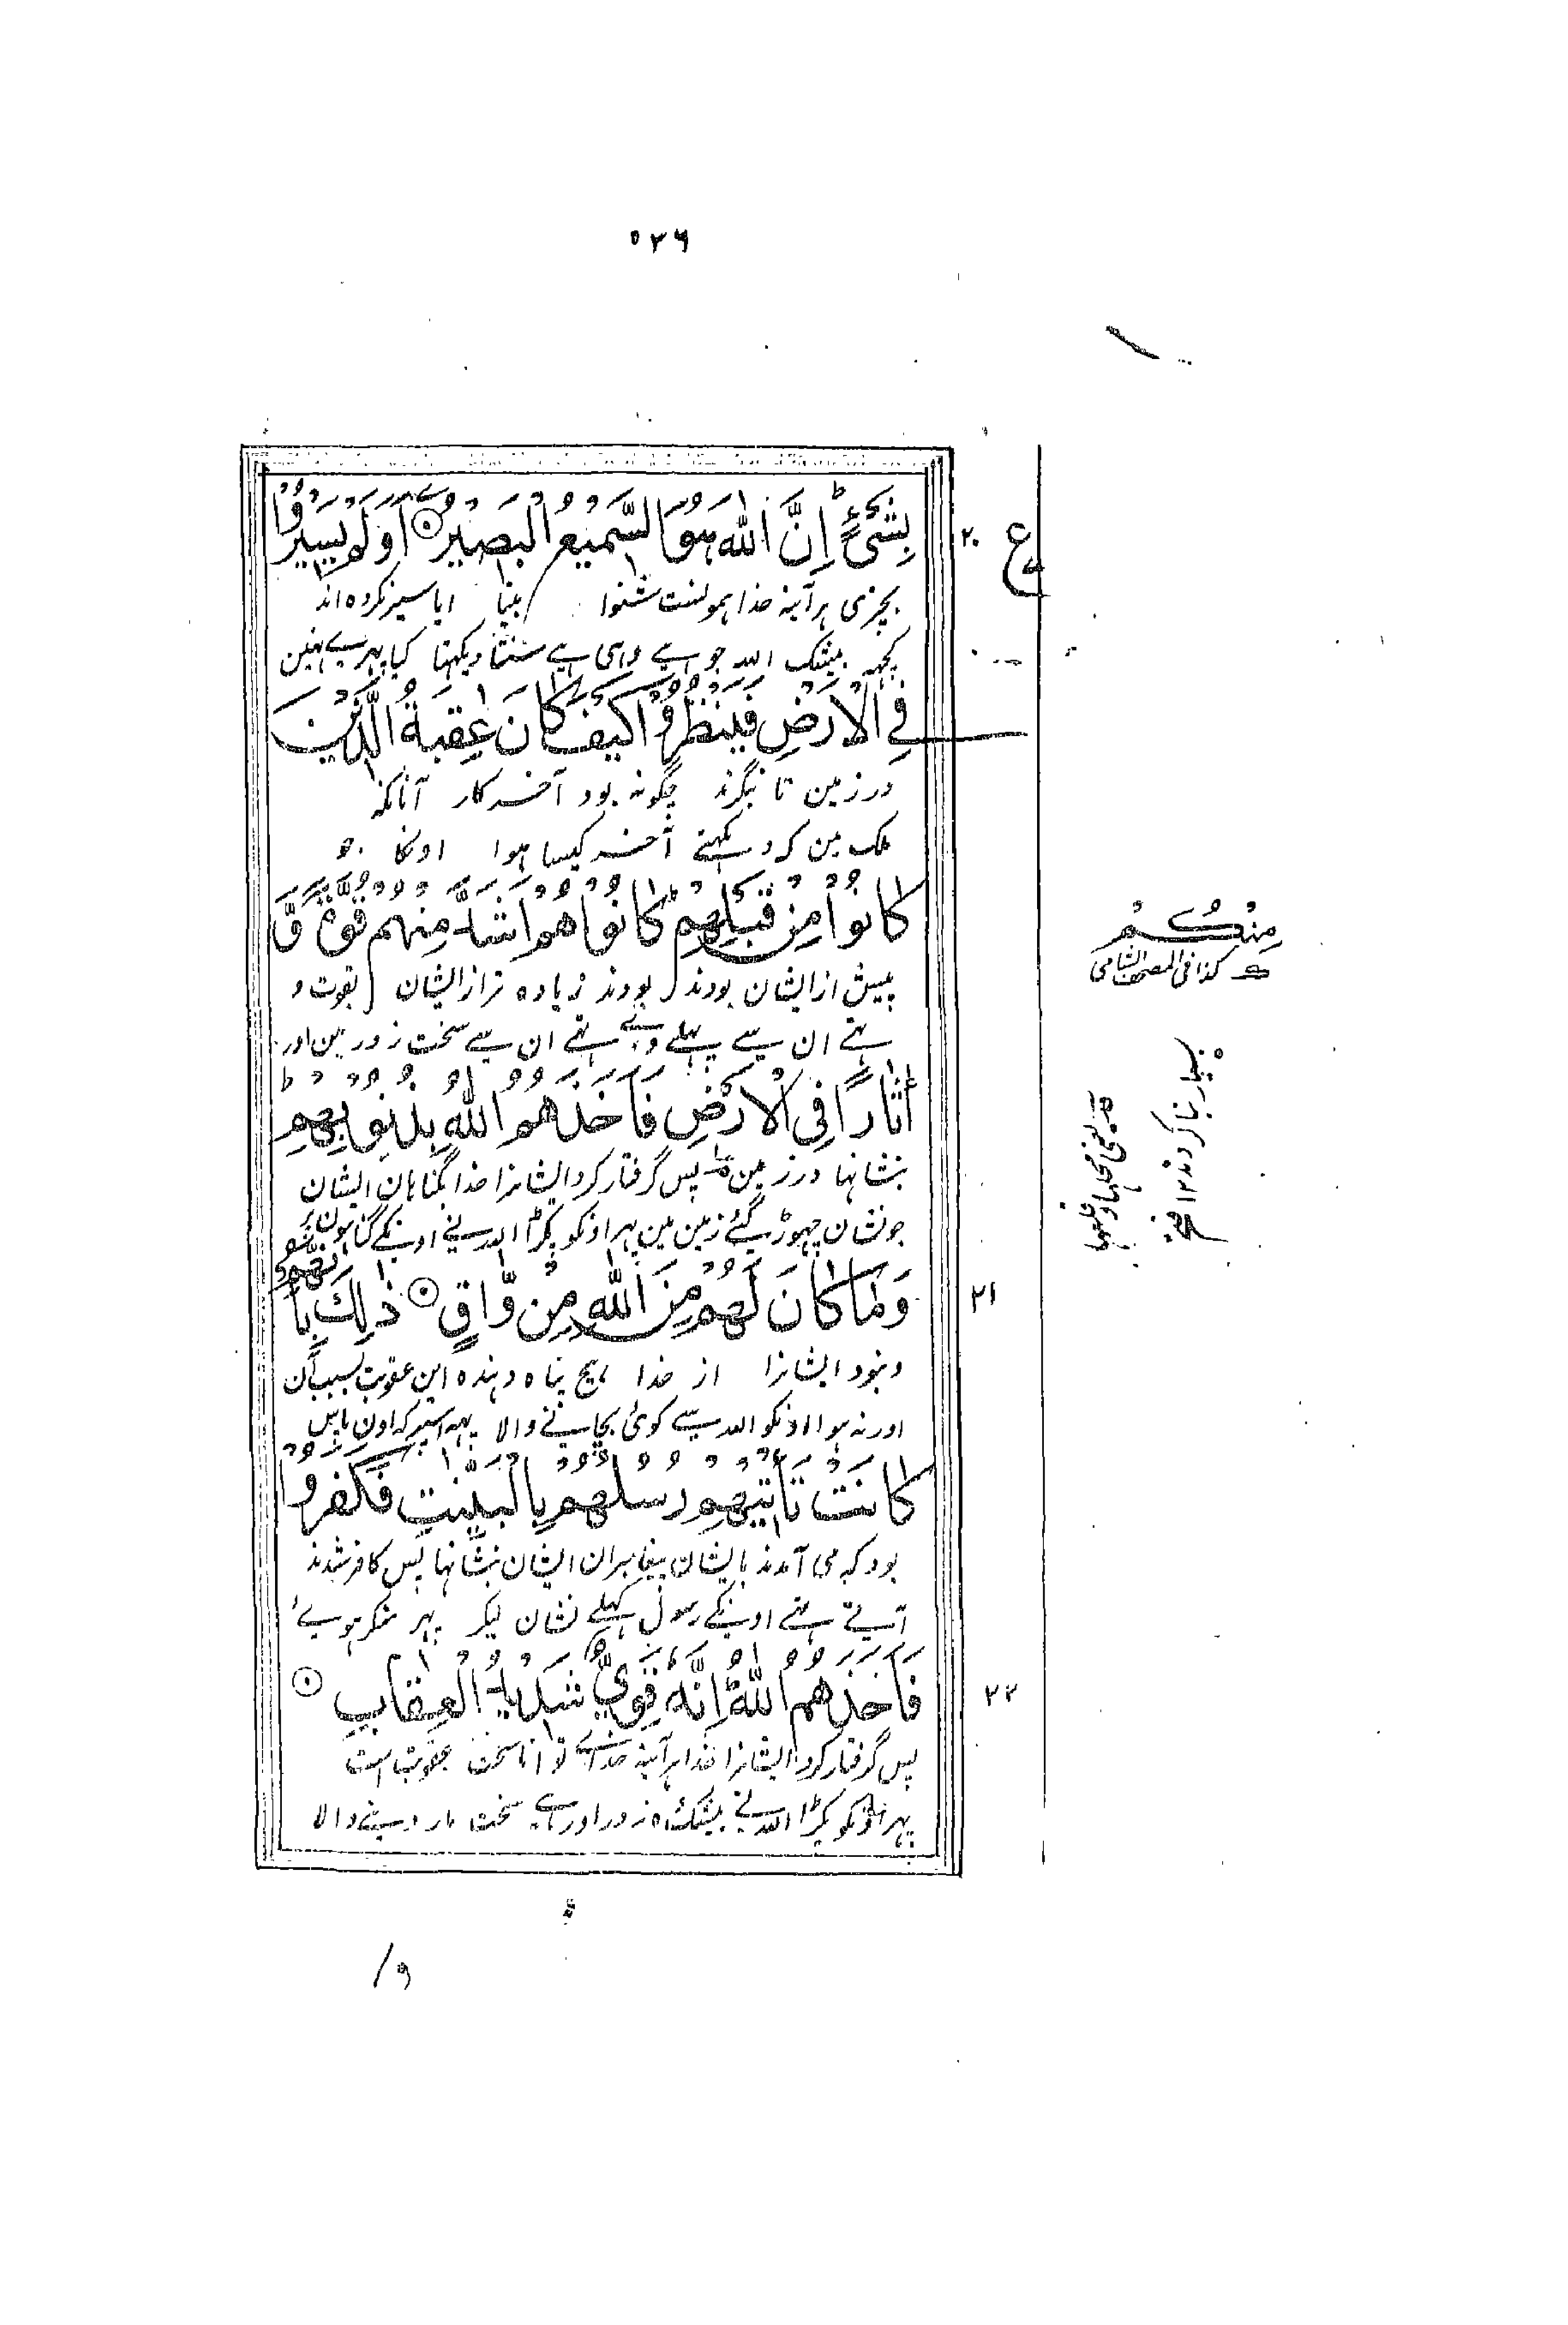 ٥٣٦
بِشَيْءٍ ؕ اِنَّ اللّٰهَ هُوَ السَّمِيْعُ الْبَصِيْرُ ۞ اَوَلَمْ يَسِيْرُوْا
٢٠
ع
بچیزی ہر آینہ خدا ہمونست شنوا بینا ایا سیر نکردہ اند
کچہہ بیشک اللہ جو ہے وہی ہے سنتا دیکہتا کیا پہرے نہین
فِي الْاَرْضِ فَيَنْظُرُوْا كَيْفَ كَانَ عٰقِبَةُ الَّذِيْنَ
در زمین تا بنگرند چگونہ بود آخر کار آنانکہ
ملک مین کہ دیکہتے آخر کیسا ہوا اونکا جو
كَانُوْا مِنْ قَبْلِهِمْ ؕ كَانُوْا هُمْ اَشَدَّ مِنْهُمْ قُوَّةً وَّ
مِنْكُمْ
كذا في المصحف الشامي
پیش ازایشان بودند بودند زیادہ تر ازایشان بقوت و
تہے ان سے پہلے وہ تہے ان سے سخت زور مین اور
اٰثَارًا فِي الْاَرْضِ فَاَخَذَهُمُ اللّٰهُ بِذُنُوْبِهِمْ ؕ
یعنی محلہا و قلعہا
بسیار بنا کردند ١٢ فتح
بنشانہا در زمین پس گرفتار کرد ایشانرا خدا بگناہان ایشان
جو نشان چہوڑ گئے زمین مین پہر اونکو پکڑا اللہ نے اونکے گناہون پر
وَمَا كَانَ لَهُمْ مِّنَ اللّٰهِ مِنْ وَّاقٍ ۞ ذٰلِكَ بِاَنَّهُمْ
٢١
ونبود ایشانرا از خدا ہیچ پناہ دہندہ این عقوبت بسبب آن
اور نہ ہوا اونکو اللہ سے کوئی بچانے والا یہہ اسپر کہ اون پاس
كَانَتْ تَّاْتِيْهِمْ رُسُلُهُمْ بِالْبَيِّنٰتِ فَكَفَرُوْا
بود کہ می آمدند بایشان پیغامبران ایشان بنشانہا پس کافر شدند
آتے تہے اونکے رسول کہلے نشان لیکر پہر منکر ہوئے
فَاَخَذَهُمُ اللّٰهُ ؕ اِنَّهٗ قَوِيٌّ شَدِيْدُ الْعِقَابِ ۞
٢٢
پس گرفتار کرد ایشانرا خدا ہر آینہ خدای توانا سخت عقوبت است
پہر اونکو پکڑا اللہ نے بیشک وہ زور اور ہے سخت مار دینے والا